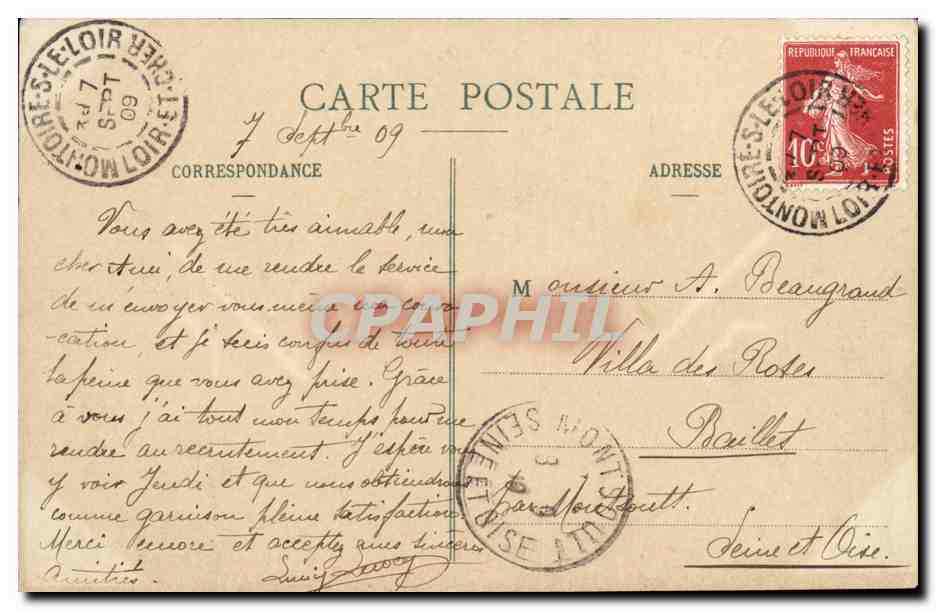 MONTOIRE-S-LE-LOIR
LOIR-ET-CHER
7
SEPT
09
CARTE POSTALE
7 Septbre 09
CORRESPONDANCE
Vous avez été très aimable, mon
cher Ami, de me rendre le service
de m'envoyer vous-même ma convo
-cation, et je suis confus de toute
la peine que vous avez prise. Grâce
à vous j'ai tout mon temps pour me
rendre au recrutement. J'espère vous
y voir Jeudi et que nous obtiendrons
comme garnison pleine satisfaction.
Merci encore et acceptez mes sincères
amitiés.
ADRESSE
REPUBLIQUE FRANÇAISE
10
POSTES
MONTOIRE-S-LE-LOIR
7
09
Monsieur A. Beaugrand
Villa des Roses
Baillet
par Montsoult
Seine et Oise.
MONTSOULT
SEINE ET OISE
CPAPHIL